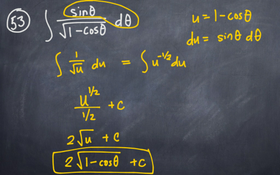 53 ∫ sinθ/√(1-cosθ) dθ
u = 1-cosθ
du = sinθ dθ
∫ 1/√u du = ∫ u^(-1/2) du
u^(1/2)/(1/2) + c
2√u + c
2√(1-cosθ) + c